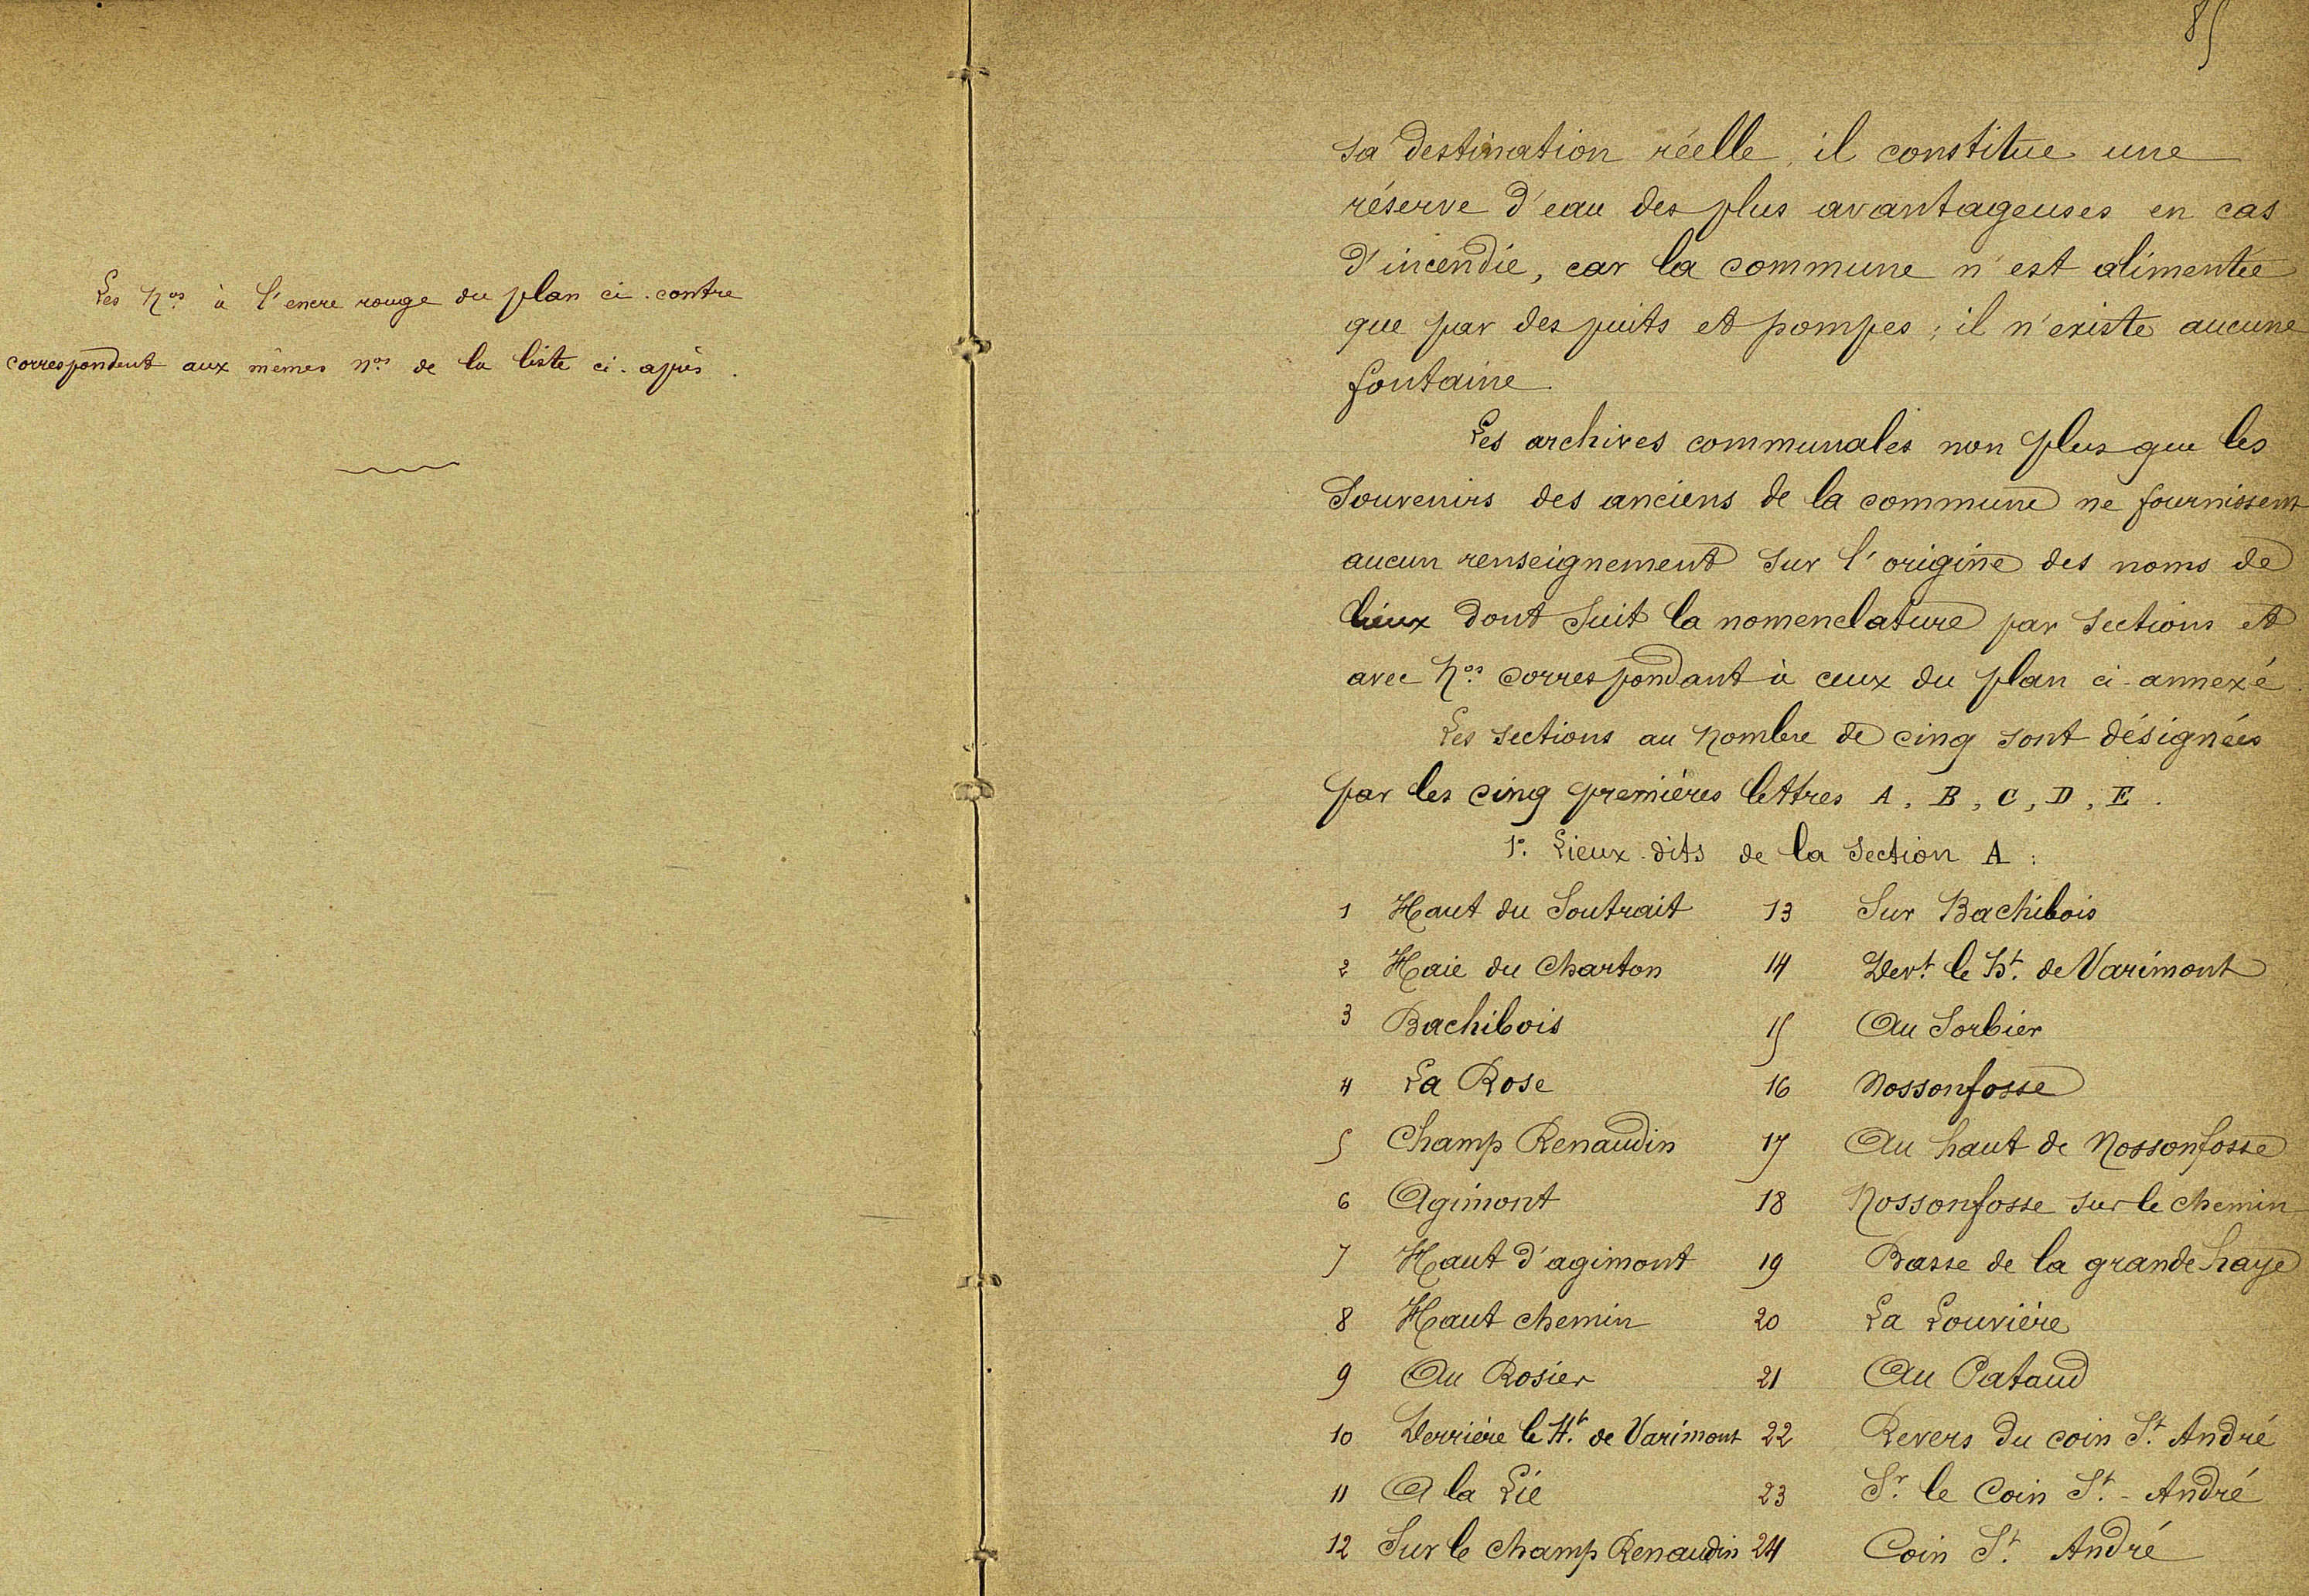 Les Nos à l'encre rouge du plan ci-contre
correspondent aux mêmes nos de la liste ci-après.
85
sa destination réelle, il constitue une
réserve d'eau des plus avantageuses en cas
d'incendie, car la commune n'est alimentée
que par des puits et pompes; il n'existe aucune
fontaine.
Les archives communales non plus que les
souvenirs des anciens de la commune ne fournissent
aucun renseignement sur l'origine des noms de
lieux dont suit la nomenclature par sections et
avec Nos correspondant à ceux du plan ci-annexé.
Les sections au nombre de cinq sont désignées
par les cinq premières lettres A, B, C, D, E.
1o. Lieux-dits de la section A:
1 Haut du Soutrait 13 Sur Bachibois
2 Haie du Charton 14 Dert. le ht. de Varimont
3 Bachibois 15 Au Sorbier
4 La Rose 16 Nossonfosse
5 Champ Renaudin 17 Au haut de Nossonfosse
6 Agimont 18 Nossonfosse sur le chemin
7 Haut d'agimont 19 Basse de la grande haye
8 Haut chemin 20 La Louvière
9 Au Rosier 21 Au Pataud
10 Derrière le Ht. de Varimont 22 Revers du coin St. André
11 A la Lie 23 Sr. le Coin St.-André
12 Sur le champ Renaudin 24 Coin St. André